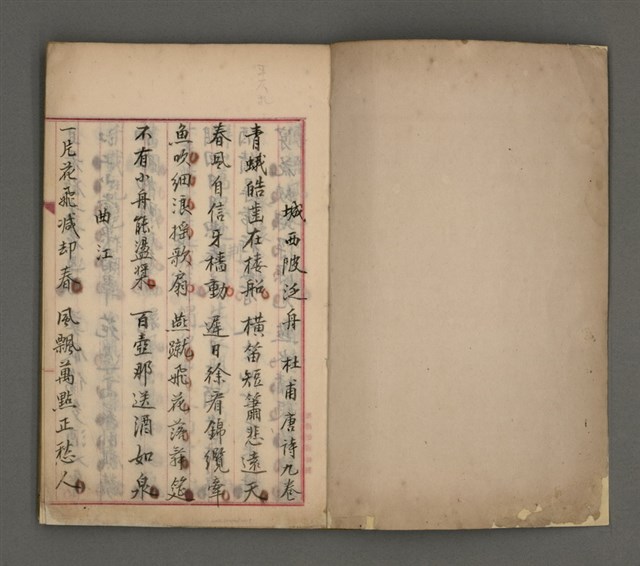 城西陂泛舟 杜甫唐诗九卷
青蛾皓齒在樓船 橫笛短簫悲遠天
春風自信牙檣動 遲日徐看錦纜牽
魚吹細浪摇歌扇 燕蹴飛花落舞筵
不有小舟能盪槳 百壺那送酒如泉
曲江
一片花飛减却春 風飄萬點正愁人